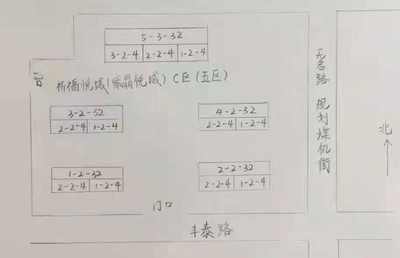 5-3-32
3-2-4 2-2-4 1-2-4
C区(五区)
3-2-52
2-2-4 1-2-4
4-2-32
2-2-4 1-2-4
1-2-32
2-2-4 1-2-4
2-2-32
2-2-4 1-2-4
门口
丰泰路
无名路 规划煤机街
北